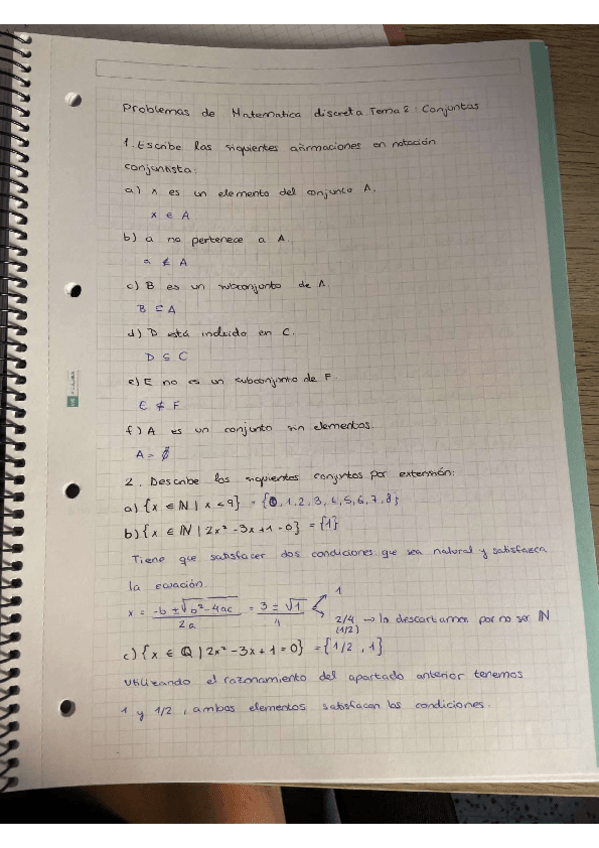 Problemas de Matematica discreta Tema 2: Conjuntos
1. Escribe las siguientes afirmaciones en notación
conjuntista:
a) x es un elemento del conjunto A.
x ∈ A
b) a no pertenece a A.
a ∉ A
c) B es un subconjunto de A.
B ⊆ A
d) D está incluido en C.
D ⊆ C
e) E no es un subconjunto de F.
E ⊄ F
f) A es un conjunto sin elementos.
A = ∅
2. Describe los siguientes conjuntos por extensión:
a) {x ∈ ℕ | x < 9} = {0, 1, 2, 3, 4, 5, 6, 7, 8}
b) {x ∈ ℕ | 2x² - 3x + 1 = 0} = {1}
Tiene que satisfacer dos condiciones que sea natural y satisfazca
la ecuación.
x = (-b ± √(b² - 4ac)) / 2a = (3 ± √1) / 4 < 1
2/4 → la descartamos por no ser ℕ
(1/2)
c) {x ∈ ℚ | 2x² - 3x + 1 = 0} = {1/2, 1}
Utilizando el razonamiento del apartado anterior tenemos
1 y 1/2, ambos elementos satisfacen las condiciones.